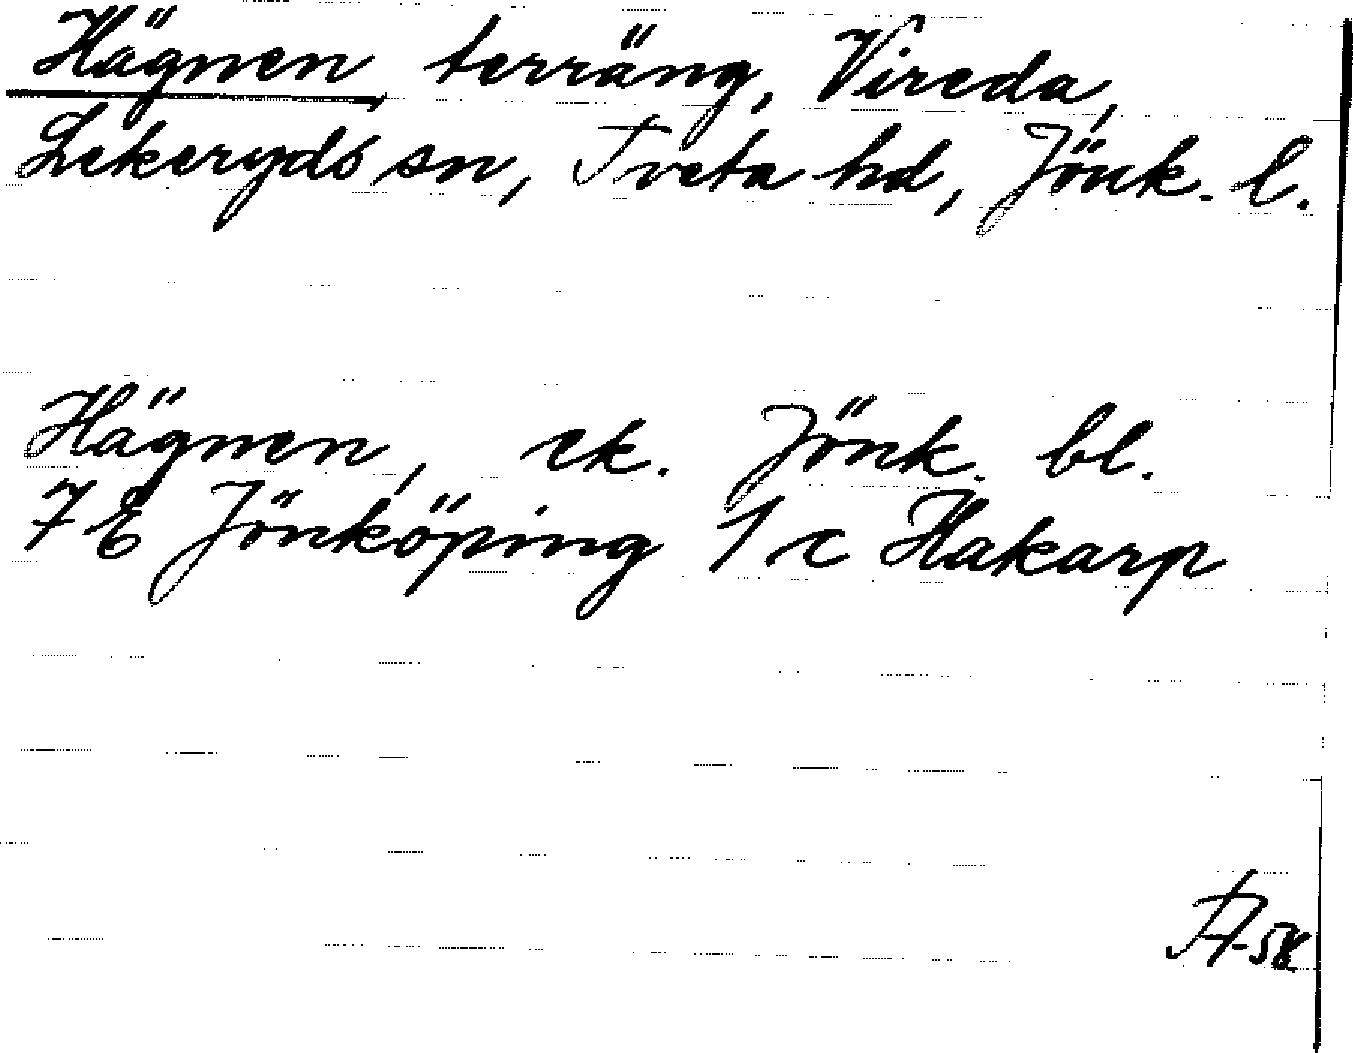 Hägnen terräng, Vireda,
Lekeryds sn, Tveta hd, Jönk. l.
Hägnen, ek. Jönk. bl.
7 E Jönköping 1 c Hakarp